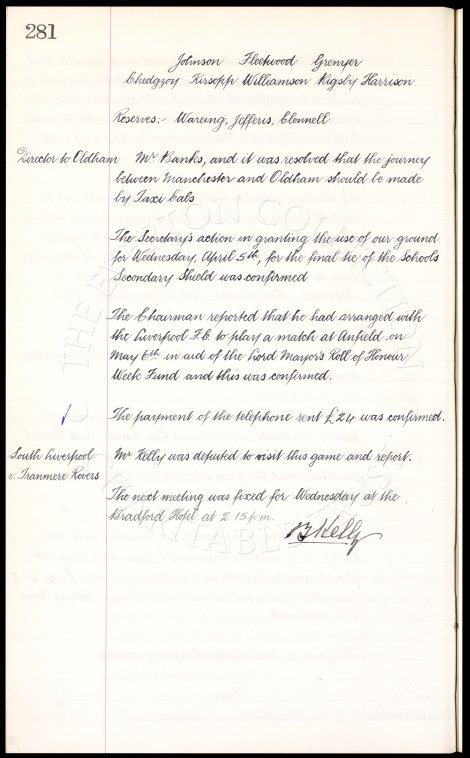 281
Johnson Fleetwood Grenyer
Chedgzoy Kirsopp Williamson Rigsby Harrison
Reserves:- Wareing, Jefferis, Clennell
Director to Oldham Mr Banks, and it was resolved that the journey
between Manchester and Oldham should be made
by Taxi Cabs
The Secretary's action in granting the use of our ground
for Wednesday, April 5th, for the final tie of the Schools
Secondary Shield was confirmed
The Chairman reported that he had arranged with
the Liverpool F.C. to play a match at Anfield on
May 6th in aid of the Lord Mayor's Roll of Honour
Week Fund and this was confirmed.
The payment of the telephone rent £24 was confirmed.
South Liverpool Mr Kelly was deputed to visit this game and report.
v. Tranmere Rovers
The next meeting was fixed for Wednesday at the
Bradford Hotel at 2.15 pm.
B Kelly
THE EVERTON COLLECTION
CHARITABLE TRUST